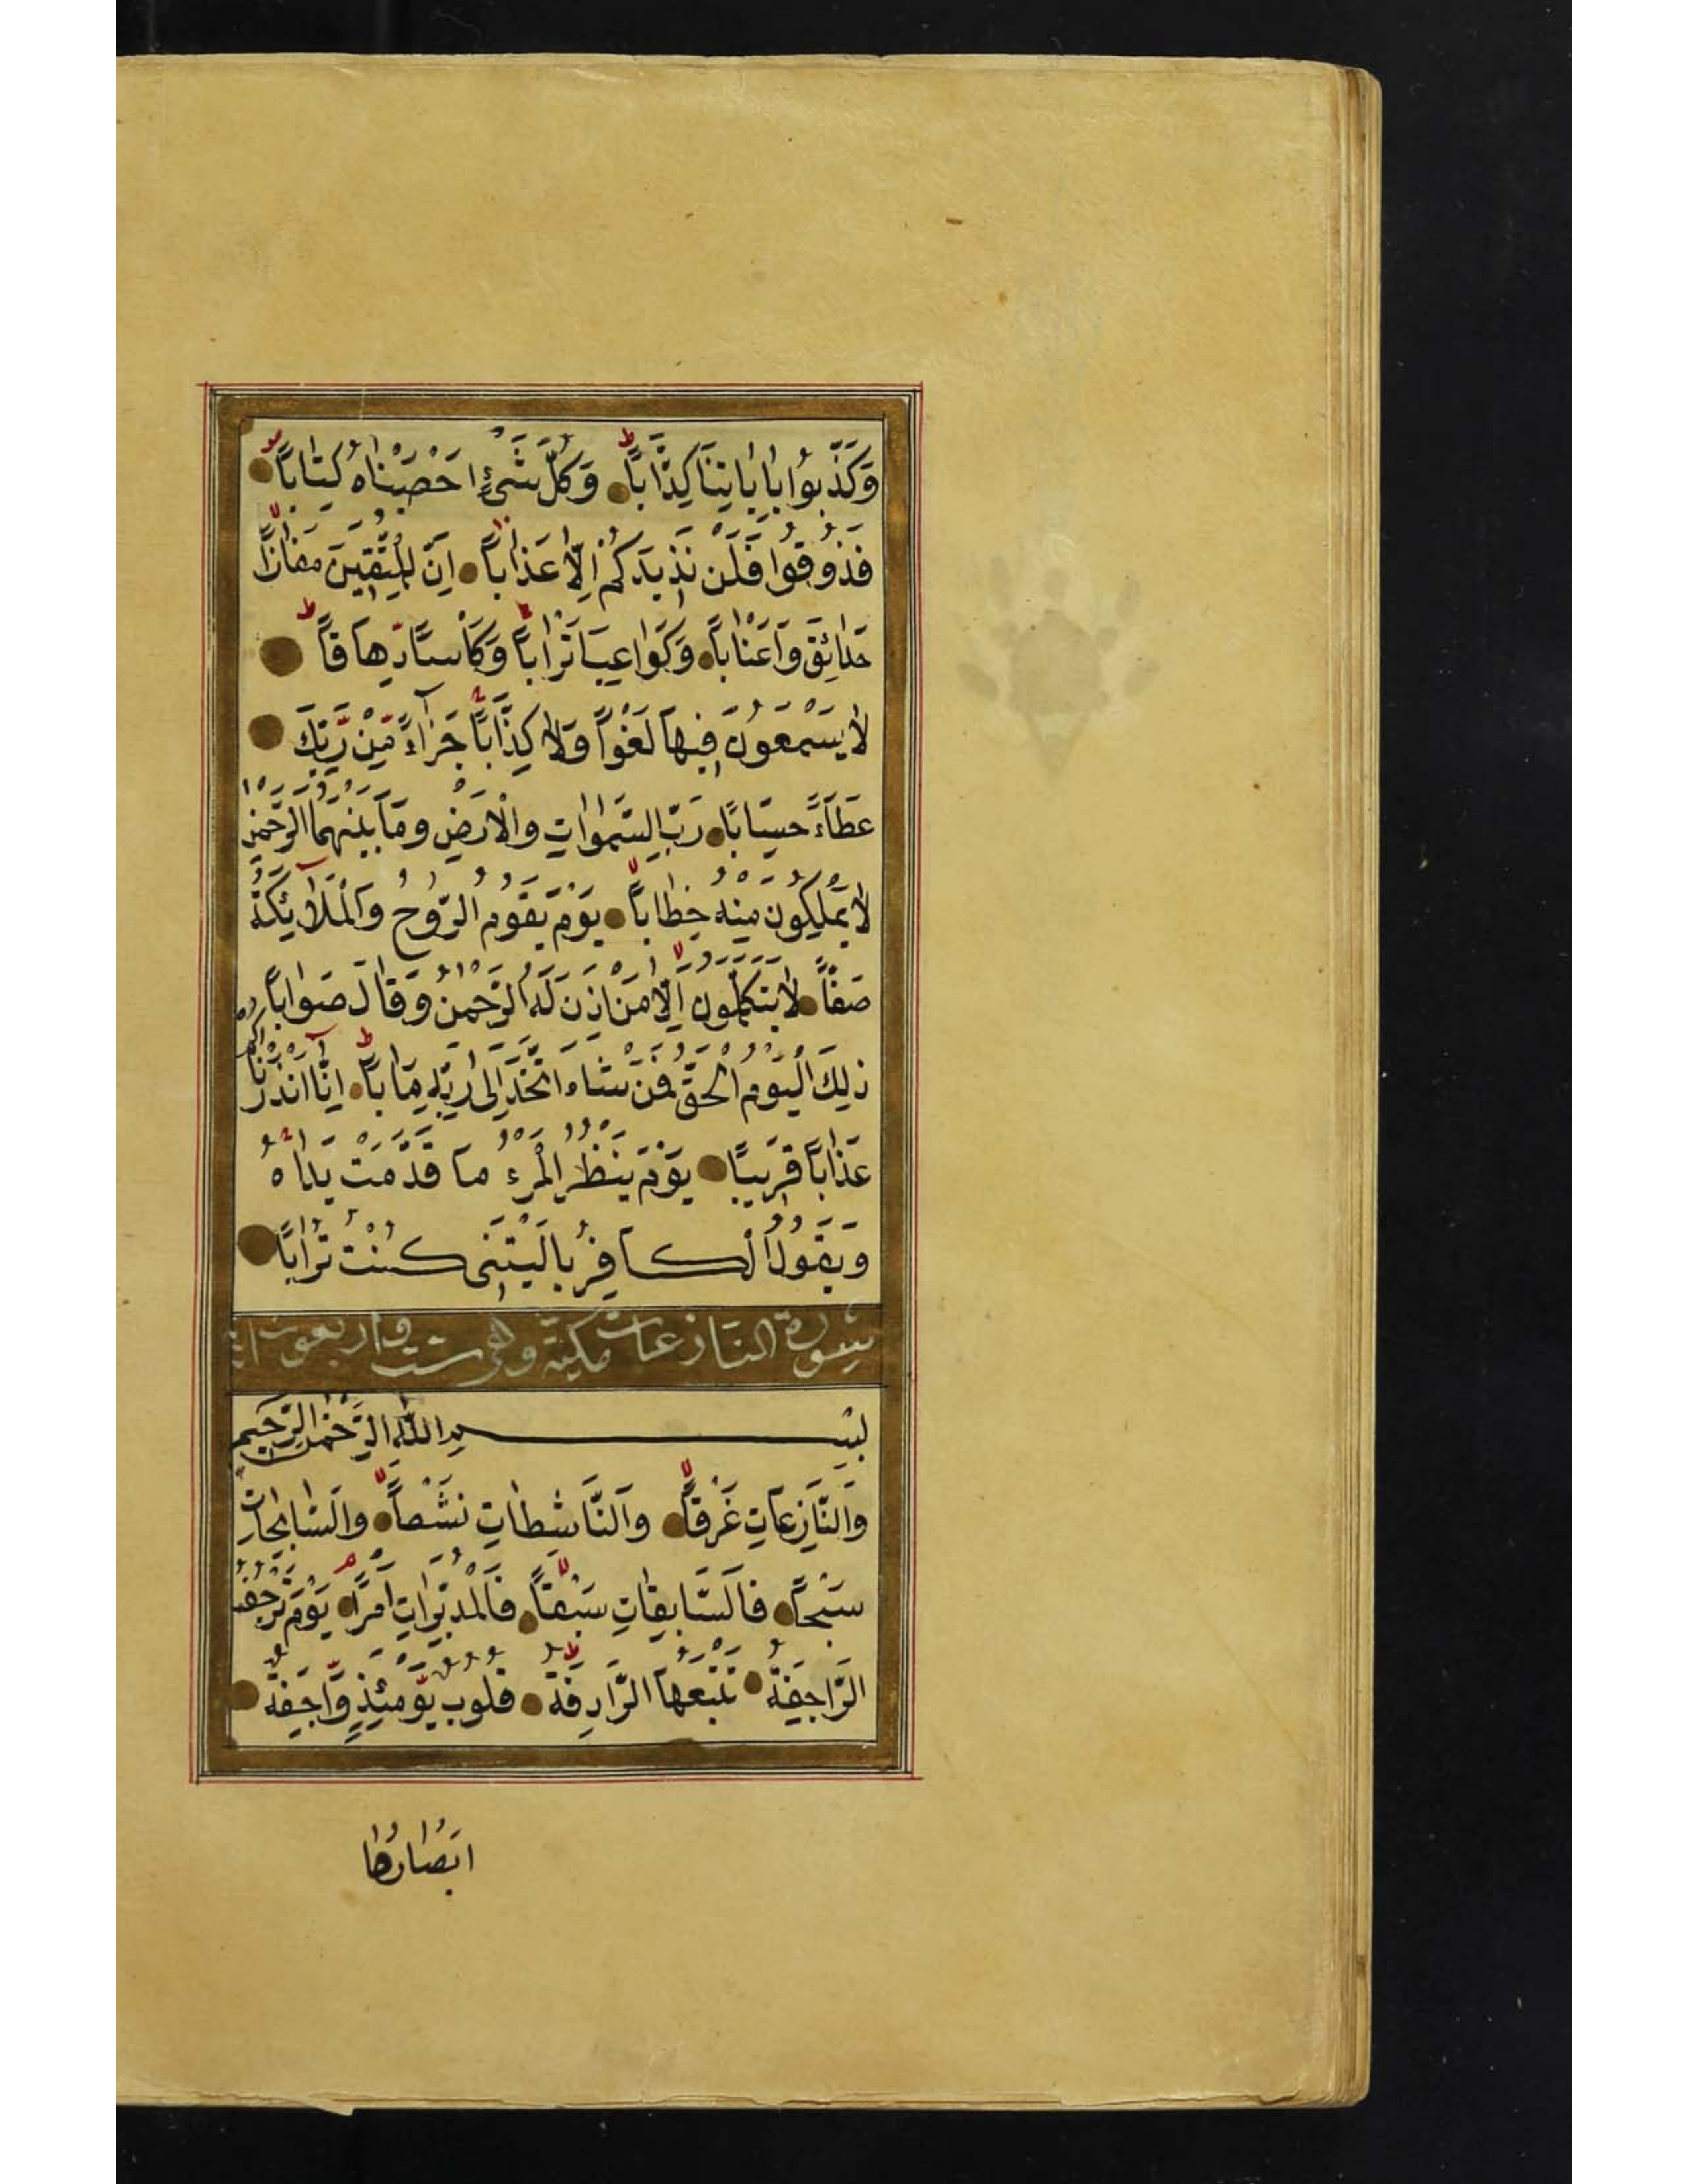 وَكَذَّبُوا بِاٰيَاتِنَا كِذَّابًا وَكُلَّ شَيْءٍ اَحْصَيْنَاهُ كِتَابًا
فَذُوقُوا فَلَنْ نَزِيدَكُمْ اِلَّا عَذَابًا اِنَّ لِلْمُتَّقِينَ مَفَازًا
حَدَائِقَ وَاَعْنَابًا وَكَوَاعِبَ اَتْرَابًا وَكَأْسًا دِهَاقًا
لَا يَسْمَعُونَ فِيهَا لَغْوًا وَلَا كِذَّابًا جَزَاءً مِّنْ رَّبِّكَ
عَطَاءً حِسَابًا رَبِّ السَّمٰوَاتِ وَالْاَرْضِ وَمَا بَيْنَهُمَا الرَّحْمٰنِ
لَا يَمْلِكُونَ مِنْهُ خِطَابًا يَوْمَ يَقُومُ الرُّوحُ وَالْمَلَائِكَةُ
صَفًّا لَا يَتَكَلَّمُونَ اِلَّا مَنْ اَذِنَ لَهُ الرَّحْمٰنُ وَقَالَ صَوَابًا
ذٰلِكَ الْيَوْمُ الْحَقُّ فَمَنْ شَاءَ اتَّخَذَ اِلٰى رَبِّهِ مَاٰبًا اِنَّا اَنْذَرْنَاكُمْ
عَذَابًا قَرِيبًا يَوْمَ يَنْظُرُ الْمَرْءُ مَا قَدَّمَتْ يَدَاهُ
وَيَقُولُ الْكَافِرُ يَا لَيْتَنِى كُنْتُ تُرَابًا
سورة النازعات مكية وهى ست واربعون
بِسْمِ اللّٰهِ الرَّحْمٰنِ الرَّحِيمِ
وَالنَّازِعَاتِ غَرْقًا وَالنَّاشِطَاتِ نَشْطًا وَالسَّابِحَاتِ
سَبْحًا فَالسَّابِقَاتِ سَبْقًا فَالْمُدَبِّرَاتِ اَمْرًا يَوْمَ تَرْجُفُ
الرَّاجِفَةُ تَتْبَعُهَا الرَّادِفَةُ قُلُوبٌ يَوْمَئِذٍ وَّاجِفَةٌ
اَبْصَارُهَا